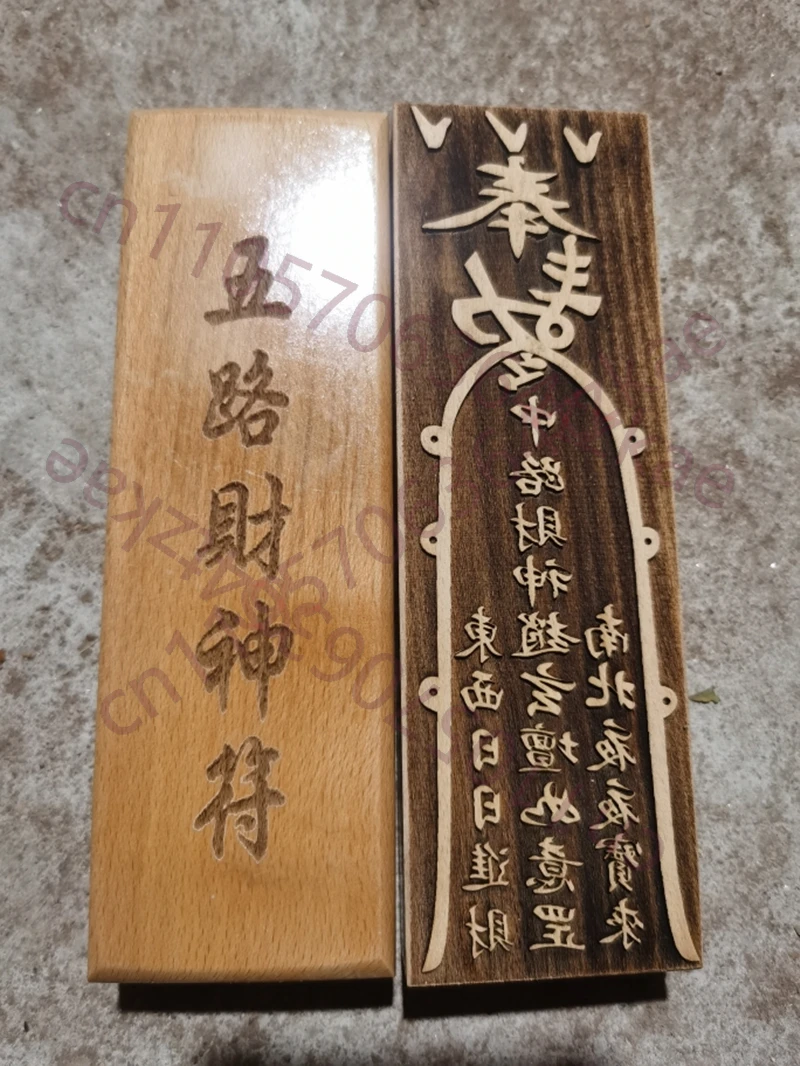 五路財神符
奉
東西日日進財
中路財神趙公壇如意罡
南北夜夜寶來